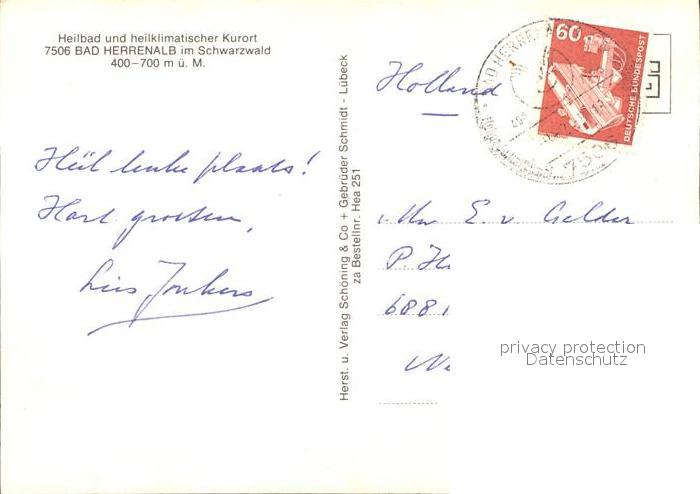 Heilbad und heilklimatischer Kurort
7506 BAD HERRENALB im Schwarzwald
400–700 m ü. M.
Heel leuke plaats!
Hart. groeten,
Lies Jonkers
Herst. u. Verlag Schöning & Co + Gebrüder Schmidt - Lübeck
za Bestellnr. Hea 251
Holland
60
DEUTSCHE BUNDESPOST
BAD HERRENALB
7506
E. v. Gelder
P. H
6881
privacy protection
Datenschutz